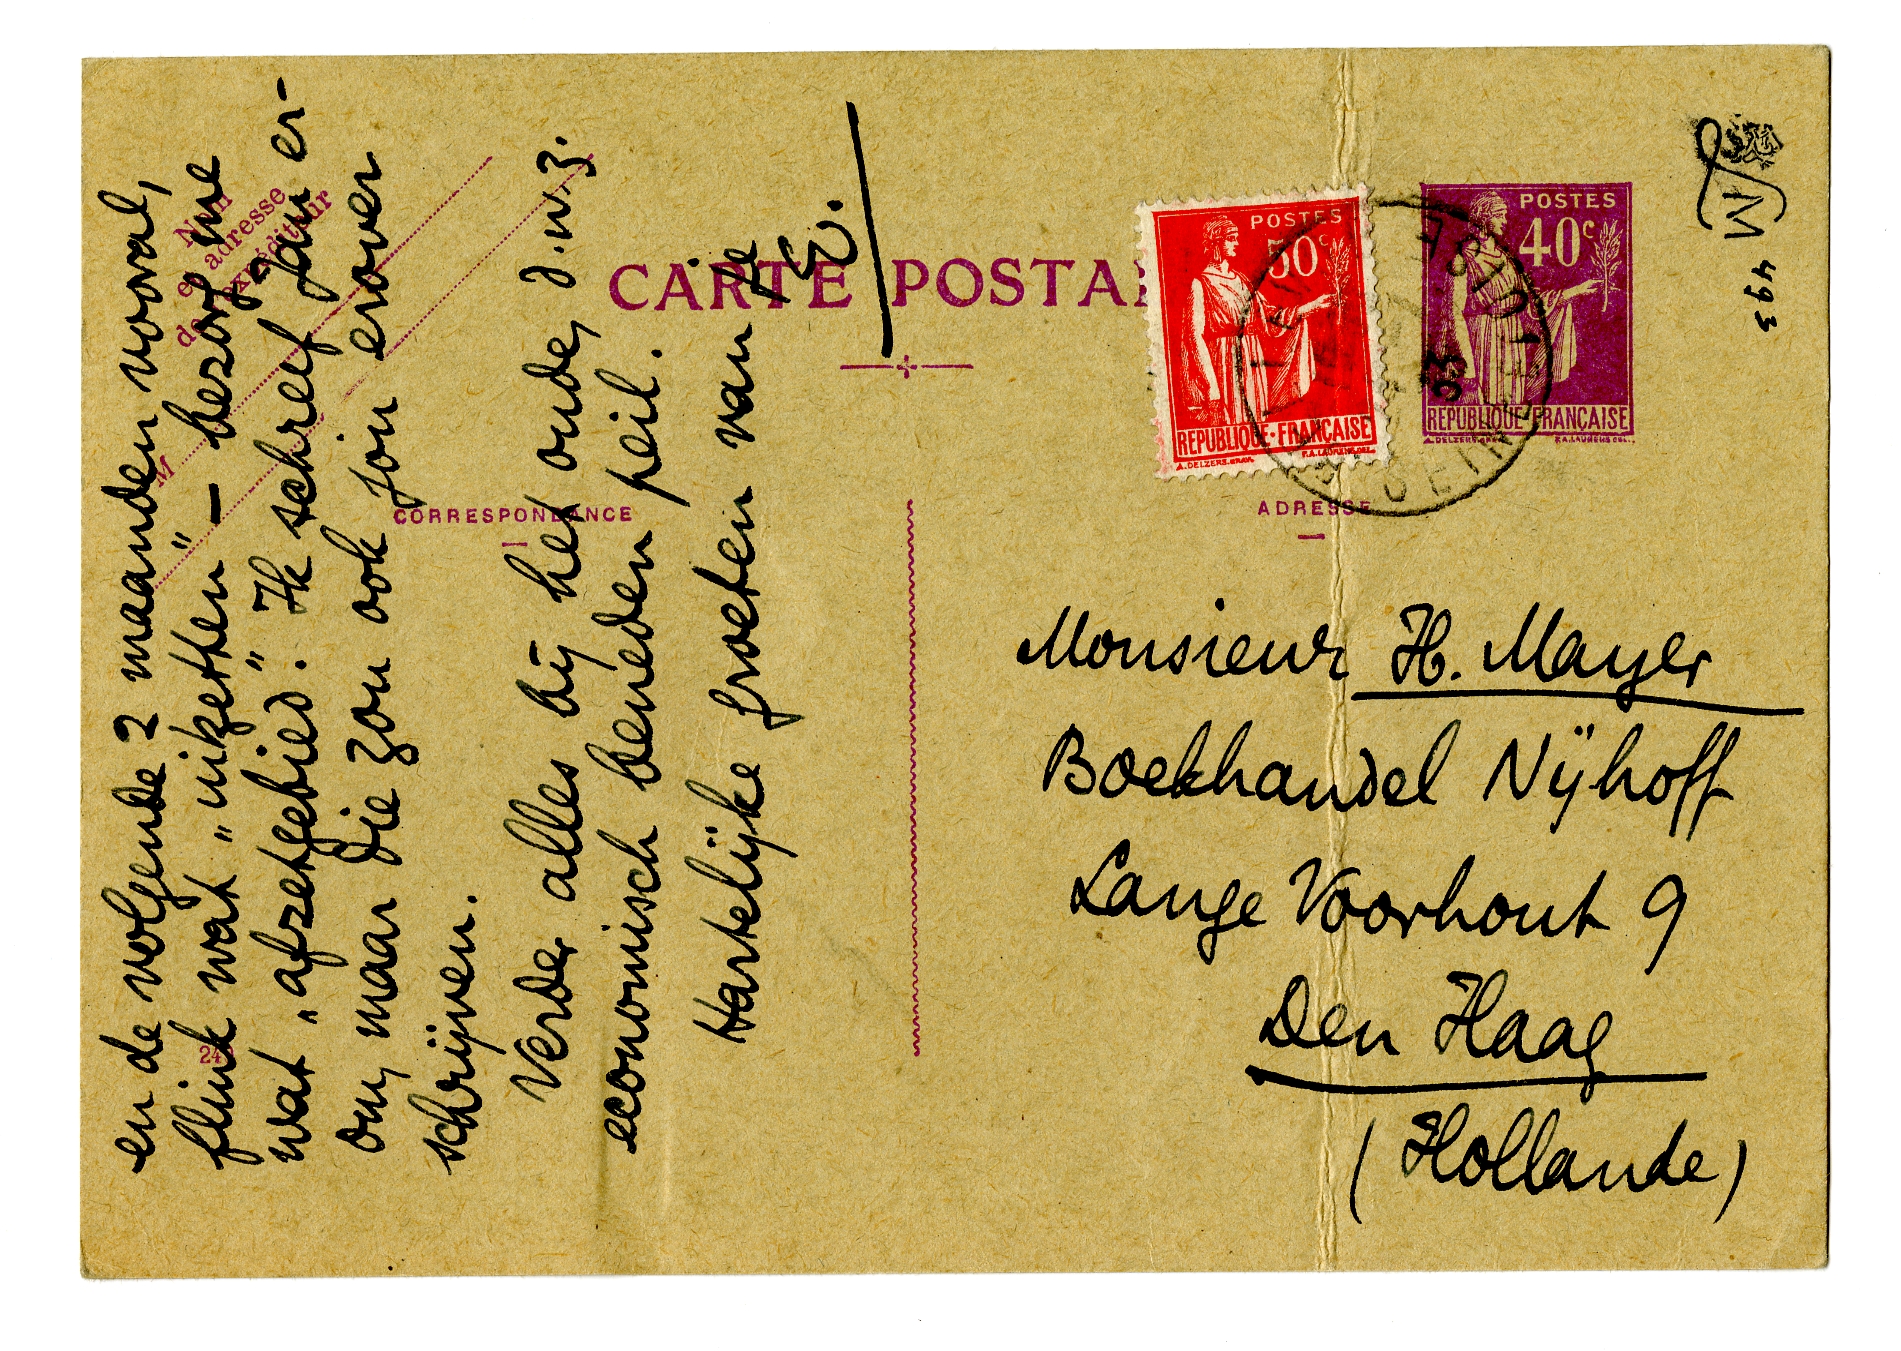 en de volgende 2 maanden vooral,
flink wat „uitzetten" — bezorg me
wat „afzetgebied". Ik schreef Jan er-
om, maar die zou ook jou erover
schrijven.
Verder alles bij het oude, d.w.z.
economisch beneden peil.
Hartelijke groeten van je
E.
Nom
et adresse
de l'expéditeur
M
24
CARTE POSTA
CORRESPONDANCE
ADRESSE
POSTES
50c
REPUBLIQUE·FRANÇAISE
A. DELZERS. GRAV. F.A. LAURENS DEL.
POSTES
40c
REPUBLIQUE·FRANÇAISE
A. DELZERS. GRAV. F.A. LAURENS DEL.
M 493
Monsieur H. Mayer
Boekhandel Nijhoff
Lange Voorhout 9
Den Haag
(Hollande)